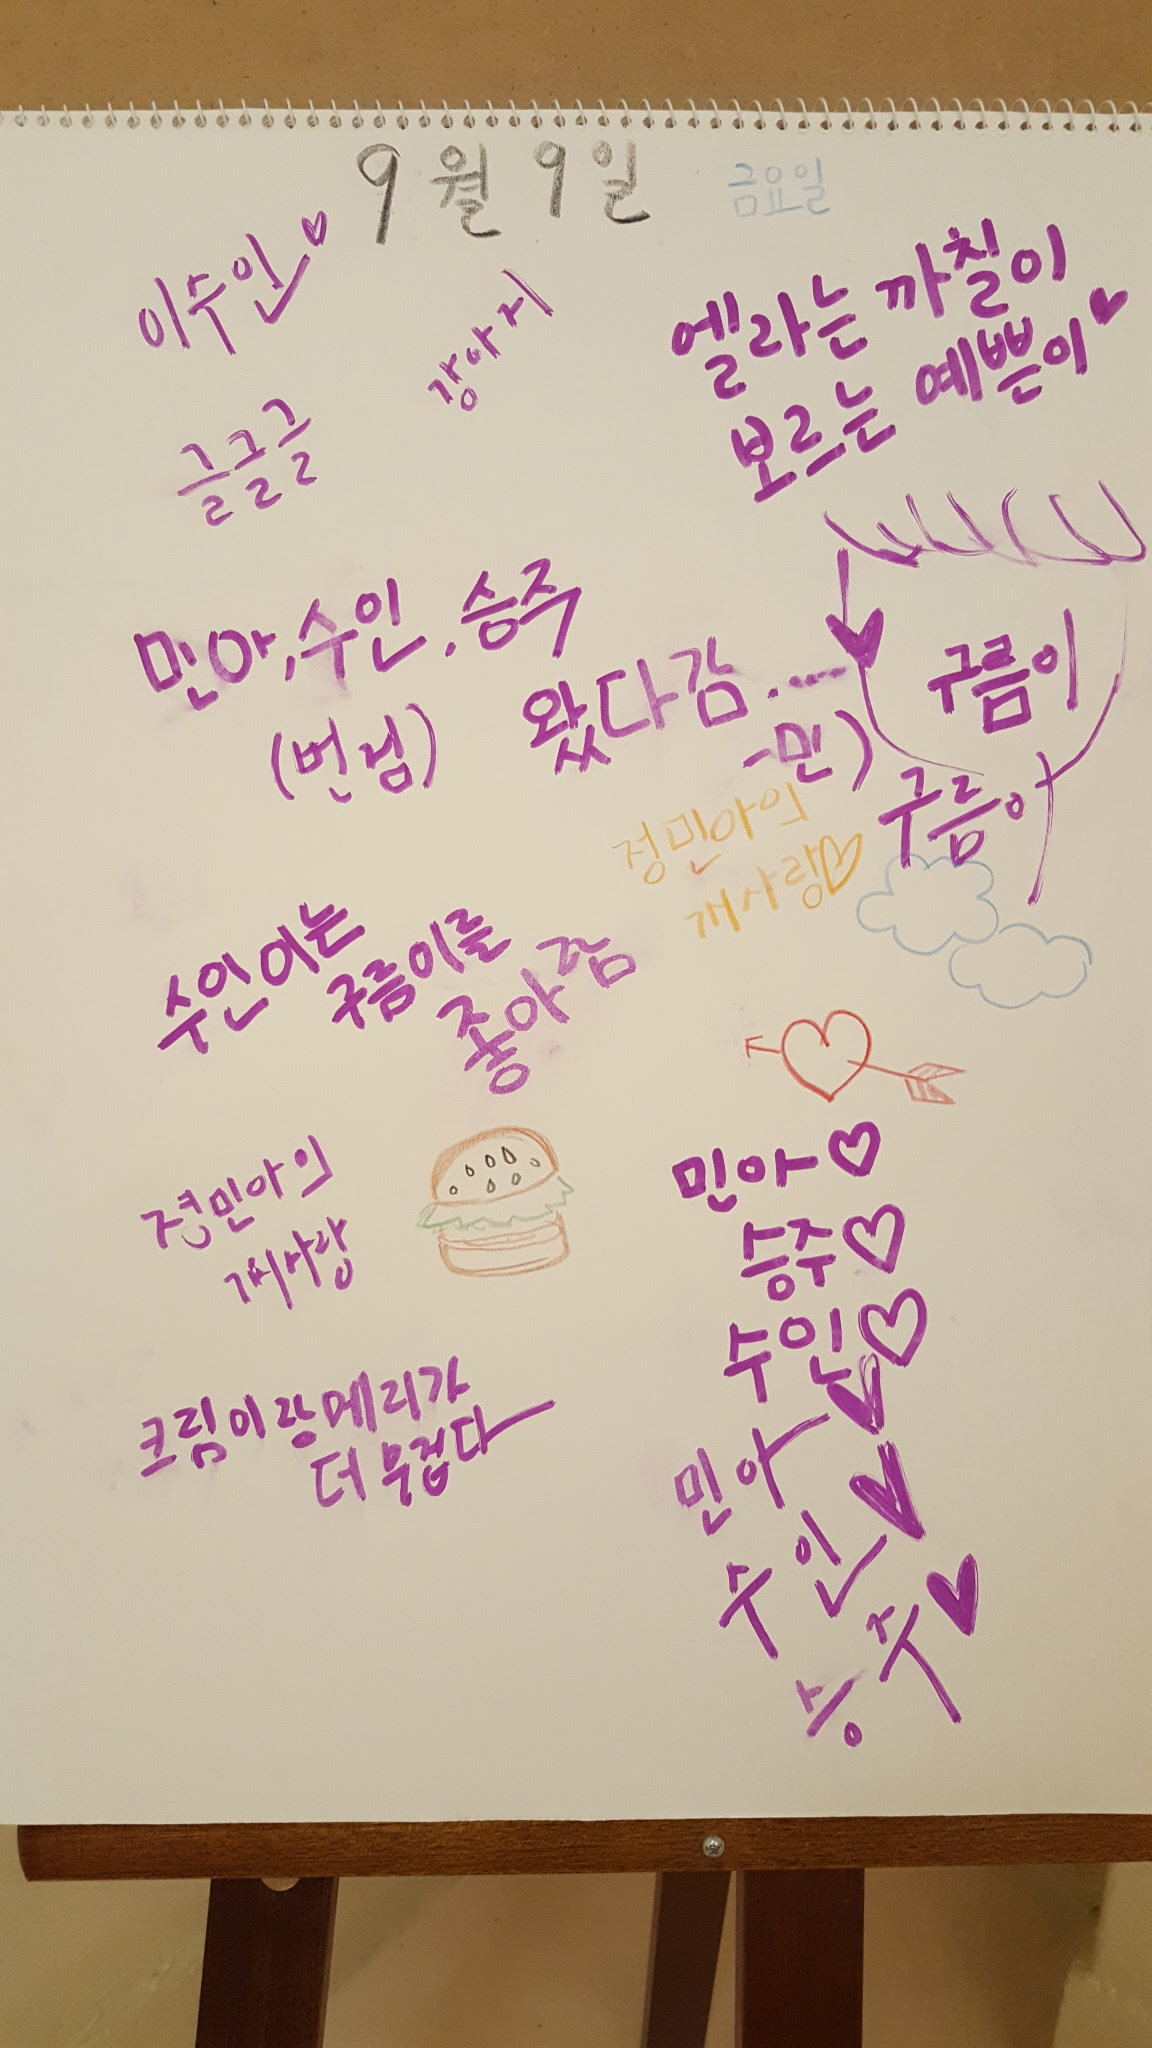 9월 9일 금요일
이수인♡
강아지
글글글
엘라는 까칠이
보르는 예쁜이♥
민아, 수인, 승주
왔다감.....
-민)
구름이
구름이
정민아의
개사랑♡
수인이는
구름이를
좋아함
정민아의
개사랑
크림이랑 메리가
더 무겁다
민아♡
승주♡
수인♡
민아♥
수인♥
승주♥